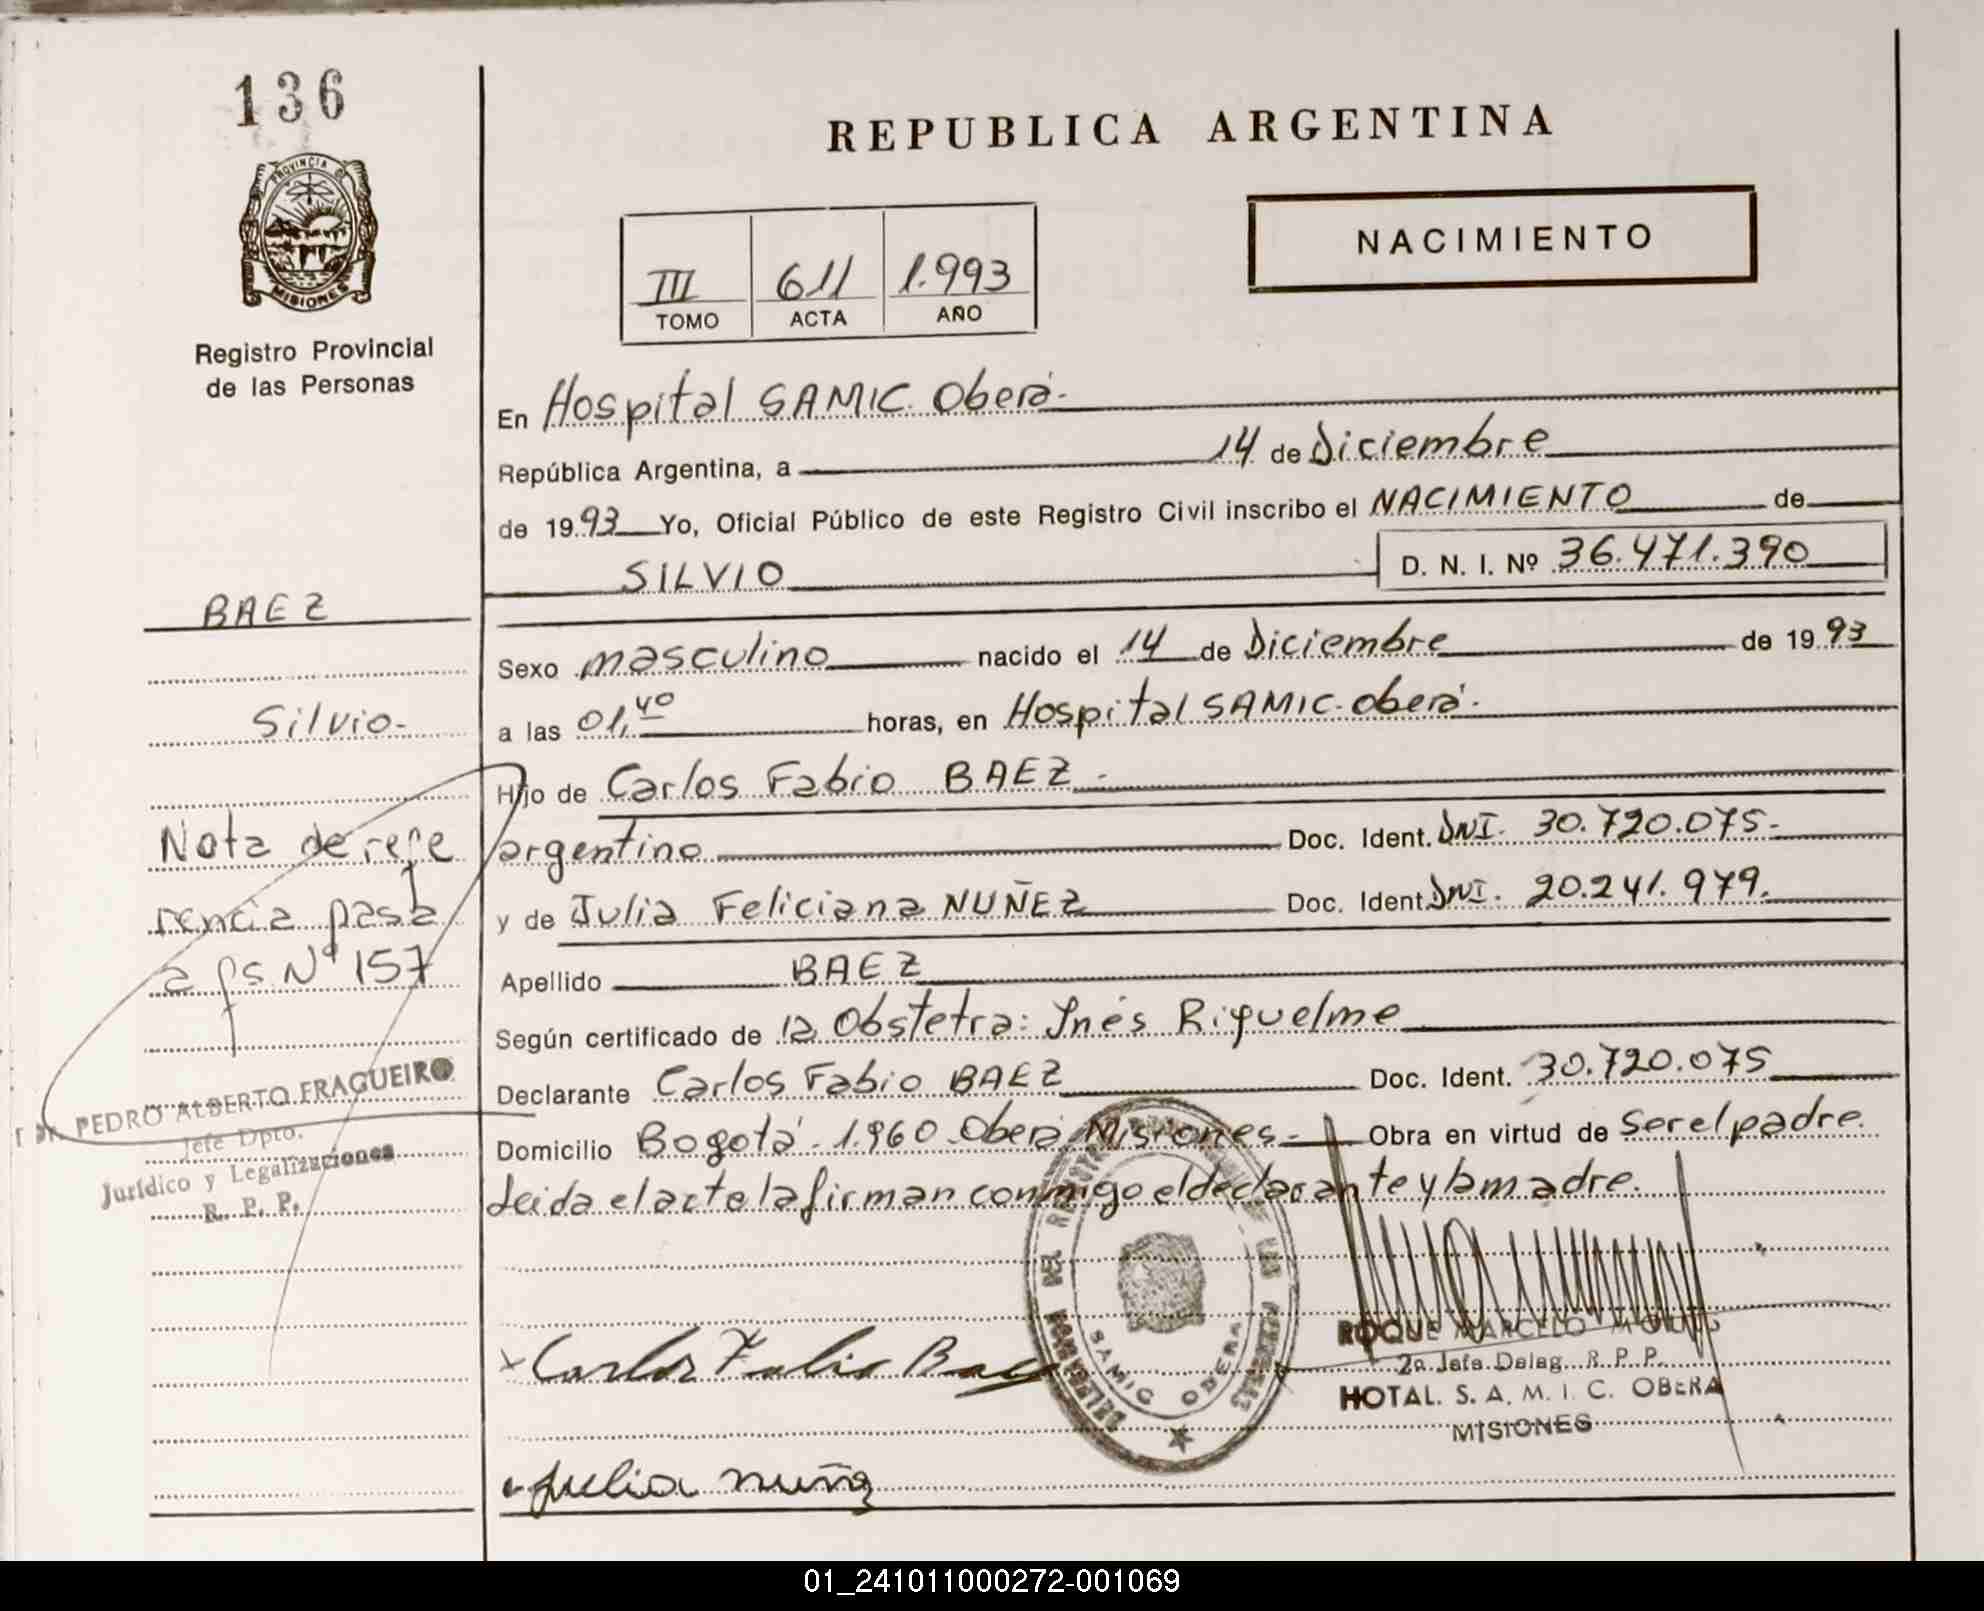 136
PROVINCIA DE
MISIONES
Registro Provincial
de las Personas
BAEZ
Silvio-
Nota de refe
rencia pasa
a fs Nº 157
PEDRO ALBERTO FRAGUEIRO
Jefe Dpto.
Jurídico y Legalizaciones
R. P. P.
REPUBLICA ARGENTINA
III 611 1.993
TOMO ACTA AÑO
NACIMIENTO
En Hospital SAMIC. Oberá.-
República Argentina, a 14 de Diciembre
de 1993 Yo, Oficial Público de este Registro Civil inscribo el NACIMIENTO de
SILVIO D. N. I. Nº 36.471.390
Sexo masculino nacido el 14 de Diciembre de 1993
a las 01,40 horas, en Hospital SAMIC. Oberá.-
Hijo de Carlos Fabio BAEZ.-
argentino Doc. Ident. DNI. 30.720.075.-
y de Julia Feliciana NUÑEZ Doc. Ident. DNI. 20.241.979.
Apellido BAEZ
Según certificado de la Obstetra: Inés Riquelme
Declarante Carlos Fabio BAEZ Doc. Ident. 30.720.075
Domicilio Bogotá - 1.960 - Oberá Misiones.- Obra en virtud de ser el padre.
Leida el acta la firman conmigo el declarante y la madre.
SAMIC OBERA
x Carlos Fabio Baez
Julia nuñez
ROQUE MARCELO
2º Jefe Deleg. R. P. P.
HOTAL. S. A. M. I. C. OBERA
MISIONES
01_241011000272-001069